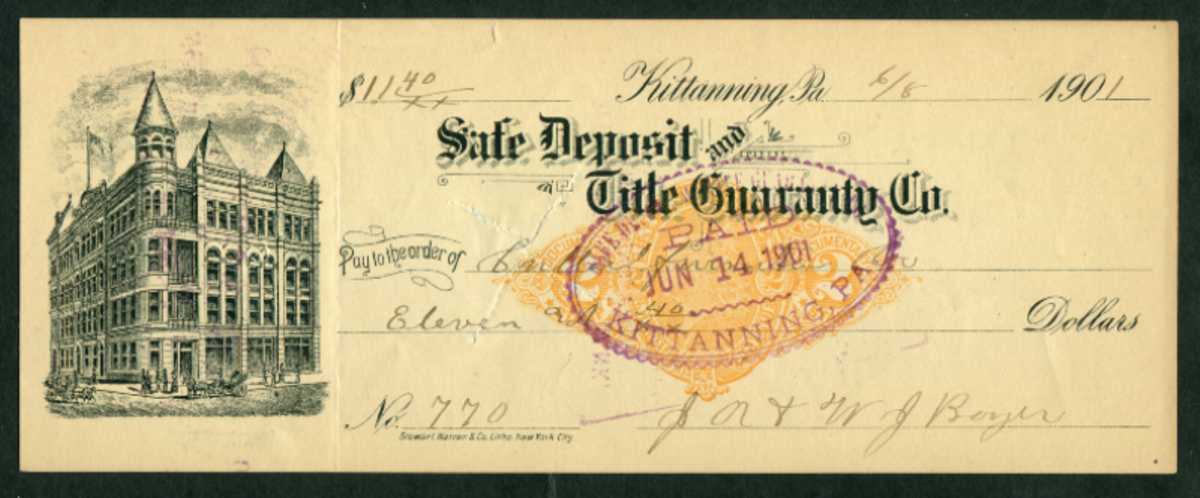 $11 40/xx Kittanning, Pa. 6/8 1901
Safe Deposit and
Title Guaranty Co.
Pay to the order of
Eleven and 40/xx Dollars
No. 770 J A & W J Boyer
Stewart Warren & Co. Litho. New York City
PAID
JUN 14 1901
KITTANNING, PA
DOCUMENTARY
2 2